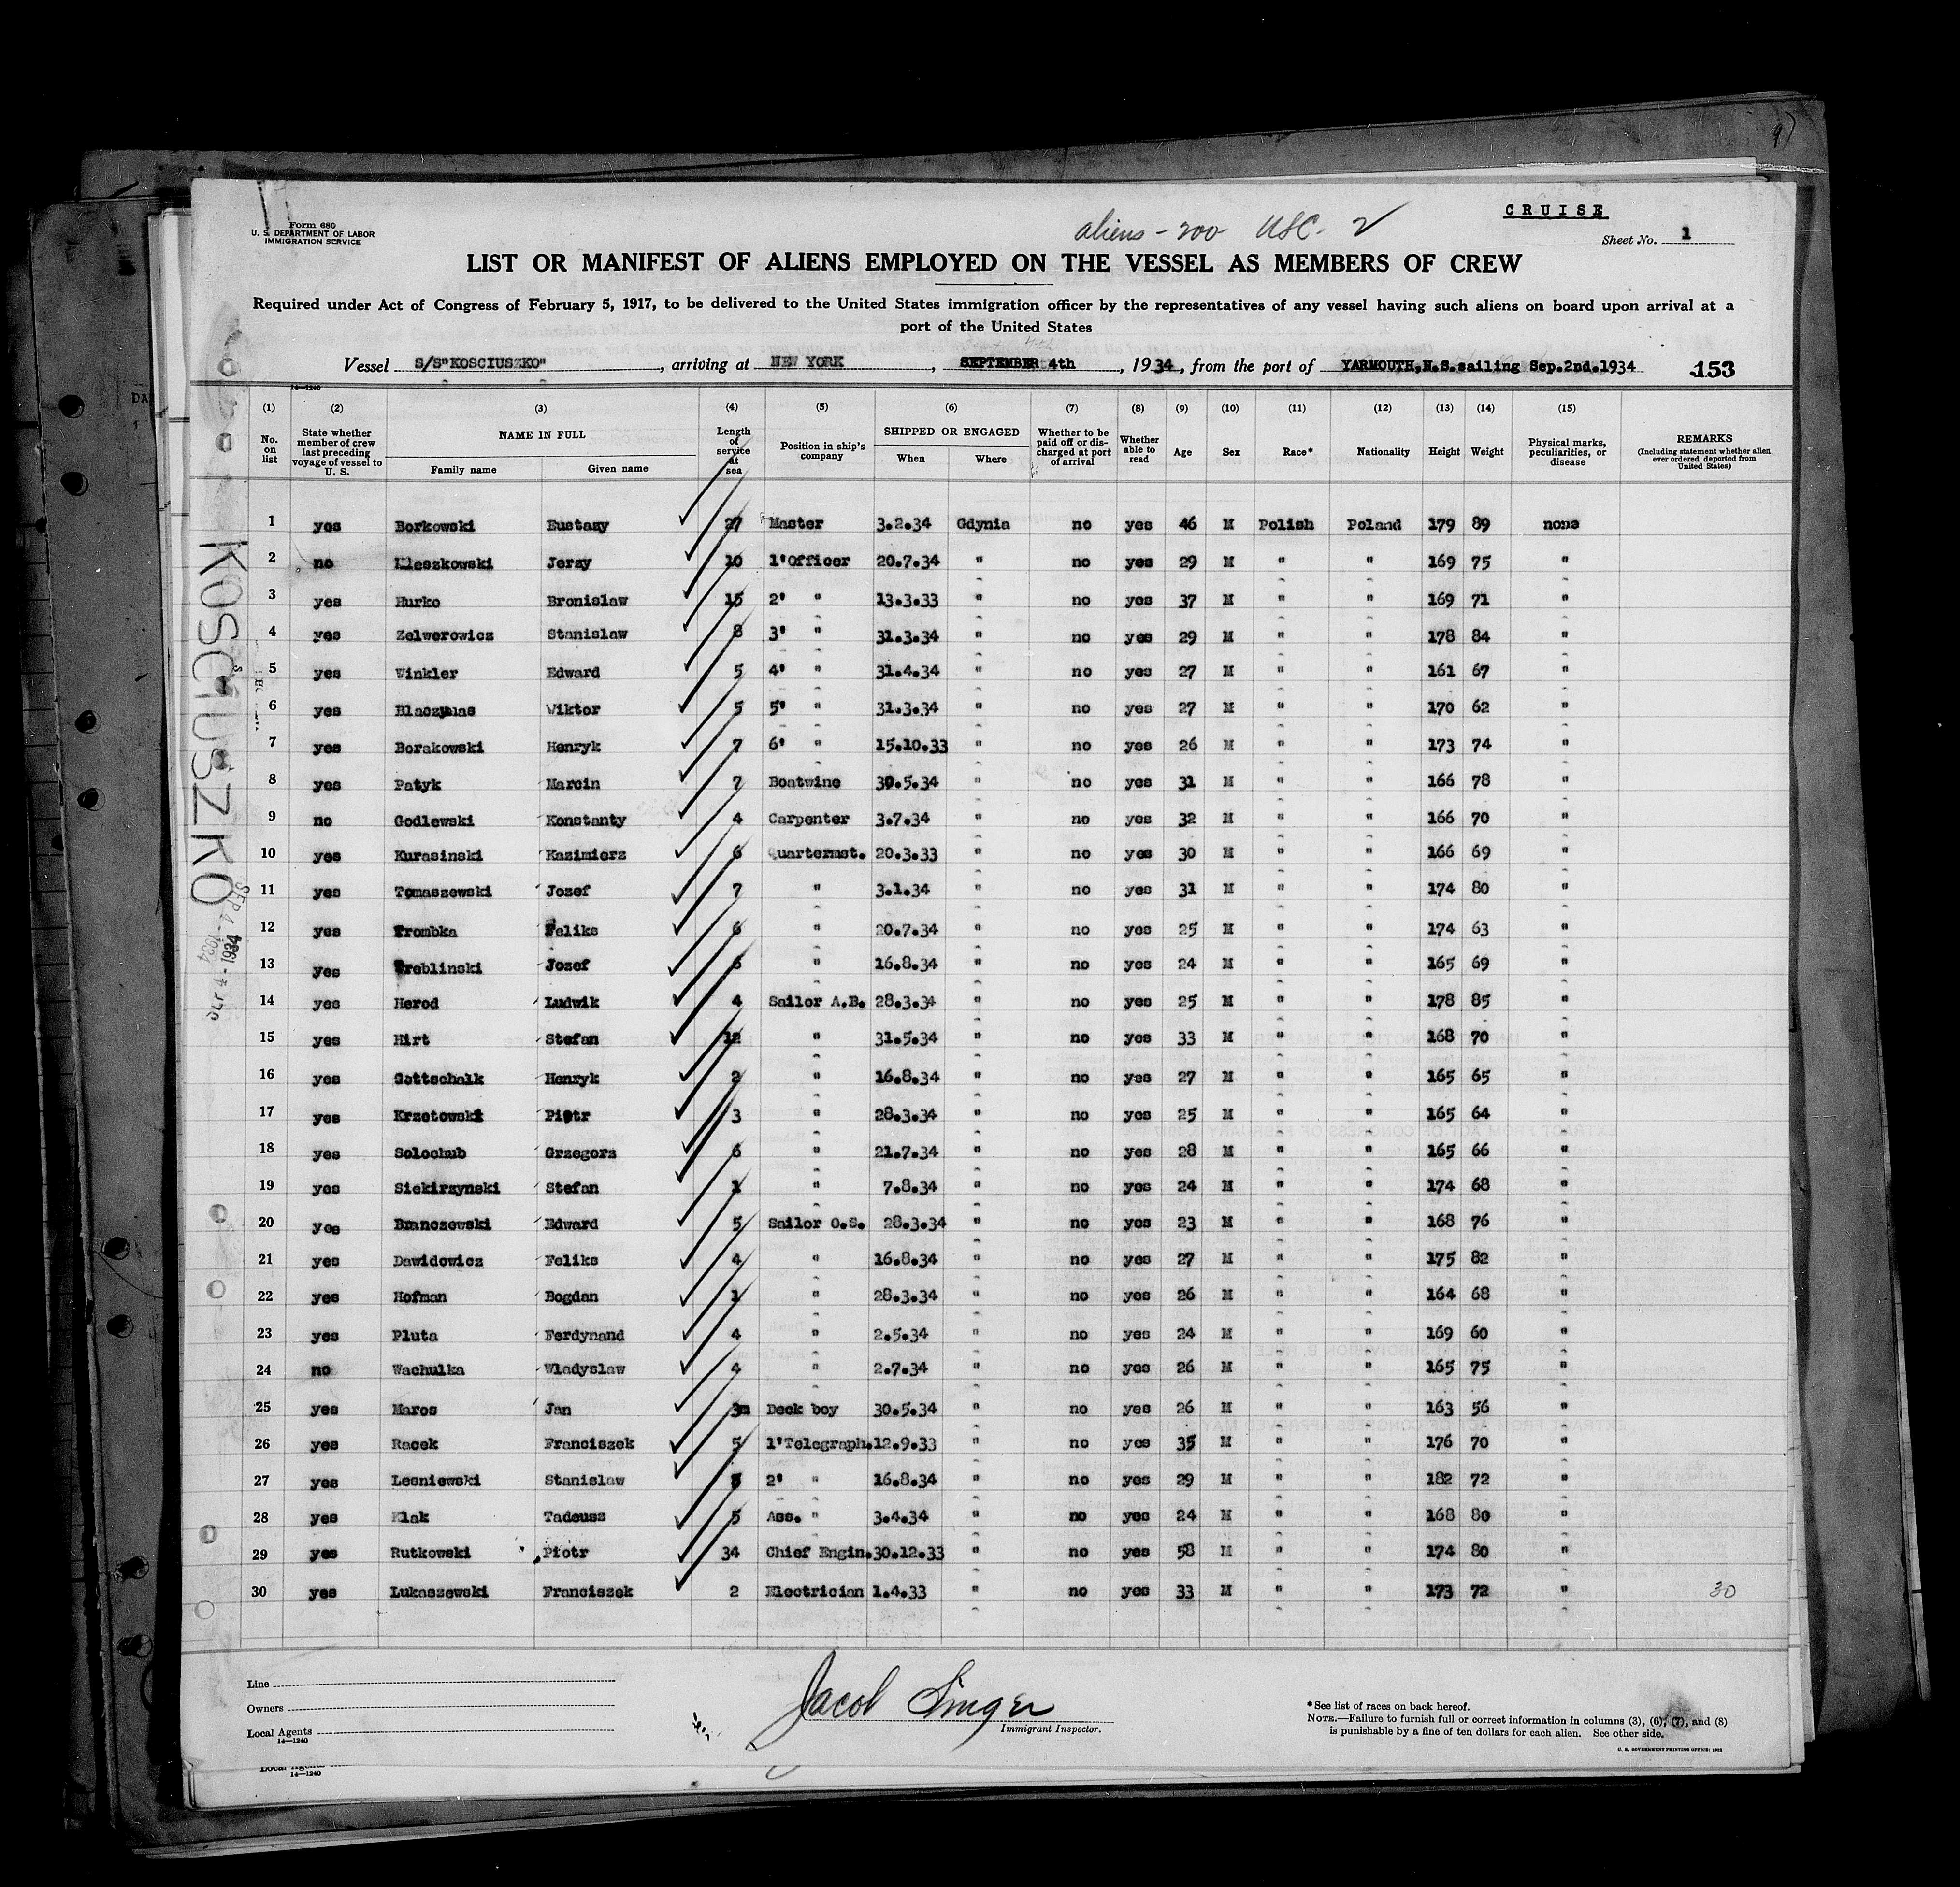 9)
CRUISE
aliens - 200 USC - 2
Form 680
U. S. DEPARTMENT OF LABOR
IMMIGRATION SERVICE
Sheet No. 1
LIST OR MANIFEST OF ALIENS EMPLOYED ON THE VESSEL AS MEMBERS OF CREW
Required under Act of Congress of February 5, 1917, to be delivered to the United States immigration officer by the representatives of any vessel having such aliens on board upon arrival at a
port of the United States
Vessel S/S"KOSCIUSZKO", arriving at NEW YORK, SEPTEMBER 4th, 1934, from the port of YARMOUTH,N.S.sailing Sep.2nd.1934 153
14—1240
(1) (2) (3) (4) (5) (6) (7) (8) (9) (10) (11) (12) (13) (14) (15)
No. on list State whether member of crew last preceding voyage of vessel to U. S. NAME IN FULL Family name Given name Length of service at sea Position in ship's company SHIPPED OR ENGAGED When Where Whether to be paid off or discharged at port of arrival Whether able to read Age Sex Race* Nationality Height Weight Physical marks, peculiarities, or disease REMARKS (Including statement whether alien ever ordered deported from United States)
1 yes Borkowski Eustazy 27 Master 3.2.34 Gdynia no yes 46 M Polish Poland 179 89 none
2 no Kleszkowski Jerzy 10 1'Officer 20.7.34 " no yes 29 M " " 169 75 "
3 yes Hurko Bronislaw 15 2' " 13.3.33 " no yes 37 M " " 169 71 "
4 yes Zelwerowicz Stanislaw 8 3' " 31.3.34 " no yes 29 M " " 178 84 "
5 yes Winkler Edward 5 4' " 31.4.34 " no yes 27 M " " 161 67 "
6 yes Wiktor 5 5' " 31.3.34 " no yes 27 M " " 170 62 "
7 yes Borakowski Henryk 7 6' " 15.10.33 " no yes 26 M " " 173 74 "
8 yes Patyk Marcin 7 Boatwine 30.5.34 " no yes 31 M " " 166 78 "
9 no Godlewski Konstanty 4 Carpenter 3.7.34 " no yes 32 M " " 166 70 "
10 yes Kurasinski Kazimierz 6 Quartermst. 20.3.33 " no yes 30 M " " 166 69 "
11 yes Tomaszewski Jozef 7 " 3.1.34 " no yes 31 M " " 174 80 "
12 yes Trombka Feliks 6 " 20.7.34 " no yes 25 M " " 174 63 "
13 yes Treblinski Jozef 6 " 16.8.34 " no yes 24 M " " 165 69 "
14 yes Herod Ludwik 4 Sailor A.B. 28.3.34 " no yes 25 M " " 178 85 "
15 yes Hirt Stefan 12 " 31.5.34 " no yes 33 M " " 168 70 "
16 yes Gottschalk Henryk 2 " 16.8.34 " no yes 27 M " " 165 65 "
17 yes Krzetowski Piotr 3 " 28.3.34 " no yes 25 M " " 165 64 "
18 yes Solochub Grzegorz 6 " 21.7.34 " no yes 28 M " " 165 66 "
19 yes Siekirzynski Stefan 1 " 7.8.34 " no yes 24 M " " 174 68 "
20 yes Branczewski Edward 5 Sailor O.S. 28.3.34 " no yes 23 M " " 168 76 "
21 yes Dawidowicz Feliks 4 " 16.8.34 " no yes 27 M " " 175 82 "
22 yes Hofman Bogdan 1 " 28.3.34 " no yes 26 M " " 164 68 "
23 yes Pluta Ferdynand 4 " 2.5.34 " no yes 24 M " " 169 60 "
24 no Wachulka Wladyslaw 4 " 2.7.34 " no yes 26 M " " 165 75 "
25 yes Maros Jan 3m Deck boy 30.5.34 " no yes 26 M " " 163 56 "
26 yes Racek Franciszek 5 1'Telegraph. 12.9.33 " no yes 35 M " " 176 70 "
27 yes Lesniewski Stanislaw 2' " 16.8.34 " no yes 29 M " " 182 72 "
28 yes Klak Tadeusz 5 Ass. " 3.4.34 " no yes 24 M " " 168 80 "
29 yes Rutkowski Piotr 34 Chief Engin. 30.12.33 " no yes 58 M " " 174 80 "
30 yes Lukaszewski Franciszek 2 Electrician 1.4.33 " no yes 33 M " " 173 72 " 30
KOSCIUSZKO
SEP 4 - 1934
Line
Owners
Local Agents
14—1240
Jacob Singer
Immigrant Inspector.
*See list of races on back hereof.
NOTE.—Failure to furnish full or correct information in columns (3), (6), (7), and (8)
is punishable by a fine of ten dollars for each alien. See other side.
U. S. GOVERNMENT PRINTING OFFICE: 1932
Local Agents
14—1240